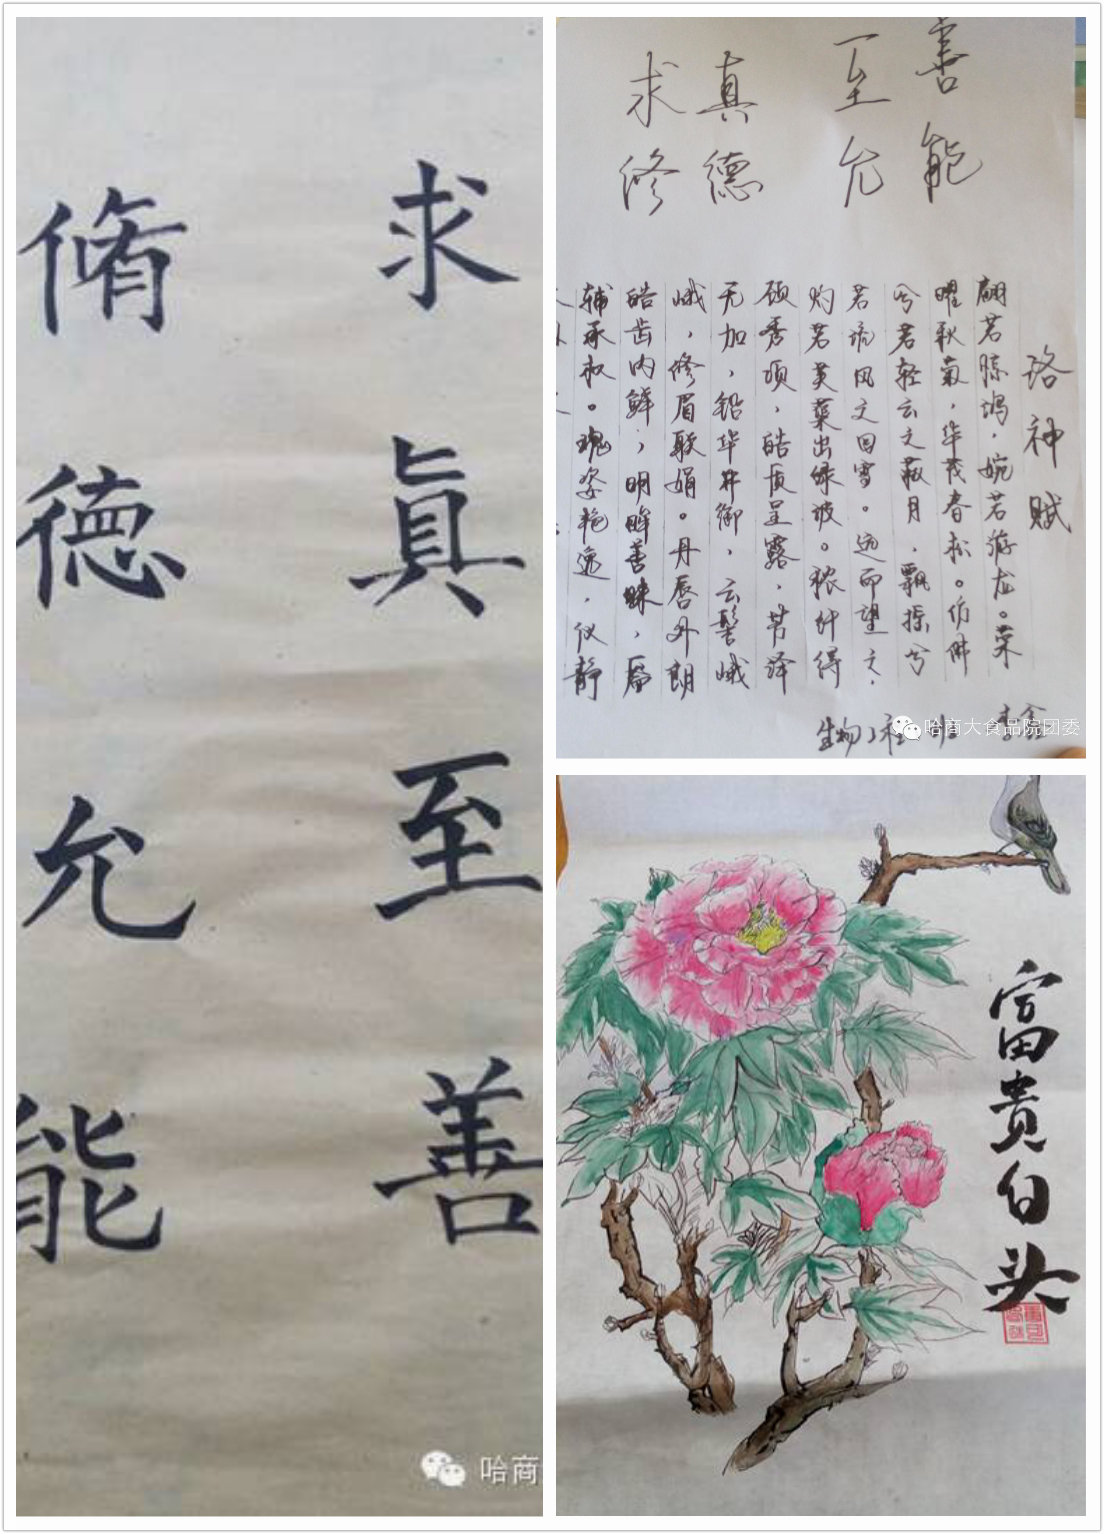 求眞至善
脩德允能
哈商
求真至善
修德允能
洛神赋
翩若惊鸿，婉若游龙。荣
曜秋菊，华茂春松。仿佛
兮若轻云之蔽月，飘摇兮
若流风之回雪。远而望之，
灼若芙蕖出绿波。秾纤得
颀秀项，皓质呈露，芳泽
无加，铅华弗御，云髻峨
峨，修眉联娟。丹唇外朗
皓齿内鲜，明眸善睐，靥
辅承权。瑰姿艳逸，仪静
生物 班
哈商大食品院团委
富贵白头